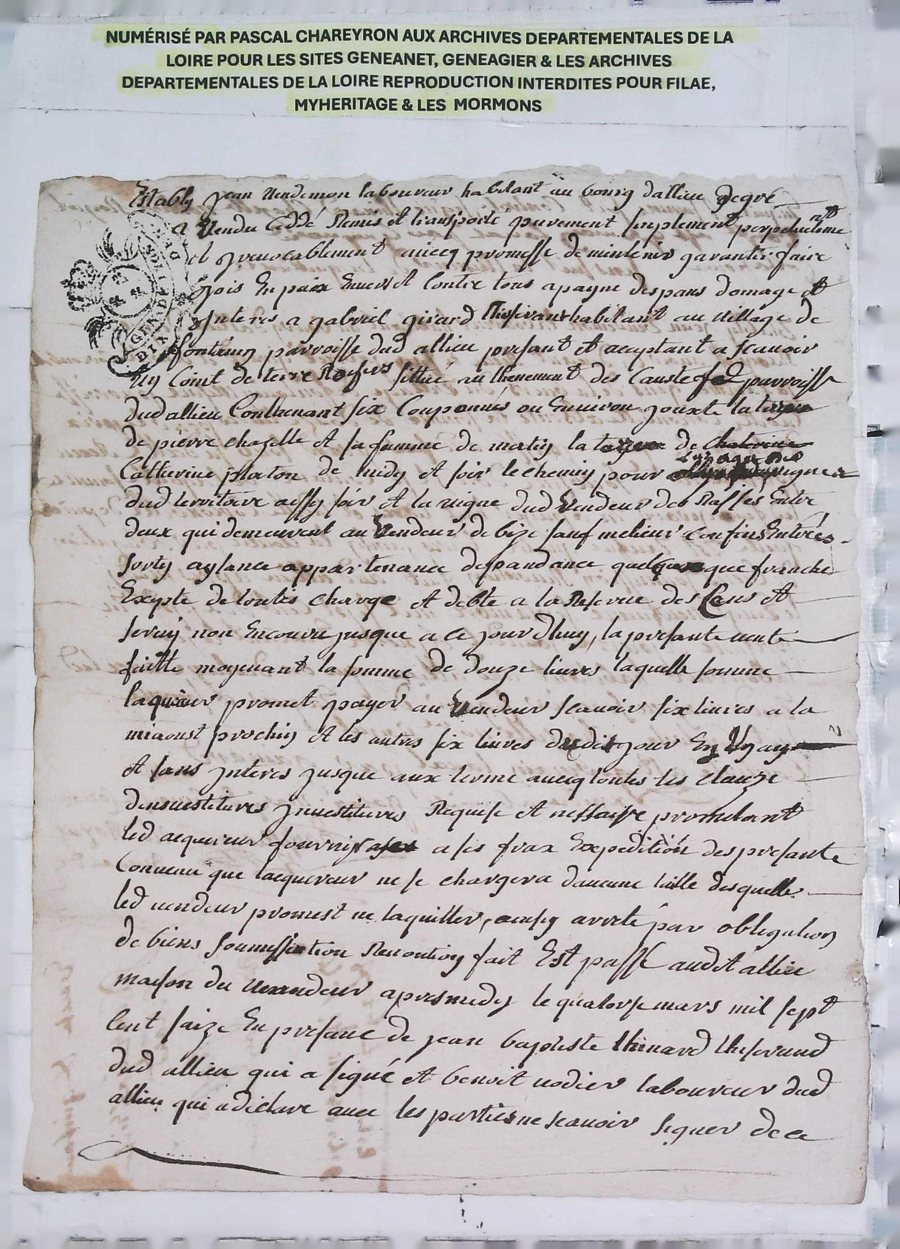 NUMÉRISÉ PAR PASCAL CHAREYRON AUX ARCHIVES DEPARTEMENTALES DE LA
LOIRE POUR LES SITES GENEANET, GENEAGIER & LES ARCHIVES
DEPARTEMENTALES DE LA LOIRE REPRODUCTION INTERDITES POUR FILAE,
MYHERITAGE & LES MORMONS
Estably jean laboureur habitant au bourg dallieu degré
a Vendu Ceddé Remis et transporte purement simplement perpetuellemt
et jrevocablement avecq promesse de mintenir garantir faire
jois En paix Envers et Contre tous apayne despans domage et
Interes a gabriel girard Thisserant habitant au village de
parroisse dud allieu presant et aceptant a scavoir
un Coint de terre sittué au thenement des parroisse
dud allieu Contenant six Couponnés ou Environ jouxte la
de pierre chazelle et sa famme de matin la de
Catherine platon de midy et soir le chemin pour
dud territoire aussy soir et la vigne dud Vendeur des Entre
deux qui demeurent au Vendeur de bize sauf melieur Confins Entrées
sorty aysance appartenance depandance quelquonque franche
Exypte de toutes charge et debte a la Reserve des Cens et
servis non Encouru jusque a ce jourdhuy, la presante vente
faitte moyenant la somme de douze livres laquelle somme
laquereur promet payer au Vendeur scavoir six livres a la
miaoust prochin et les autres six livres dudit jour En Un an
et sans jnteres jusque aux terme avecq toutes les clauze
devestitures jnvestitures Requise et nessaire promettant
led acquereur fournir a ses frax Expédition des presante
Convenu que lacquereur ne se chargera daucune taille desquelle
led vendeur promest ne laquitter, ainsy arreté par obligation
de biens soumission Renontion fait Est passé audit allieu
maison du Vandeur apresmidy le quatorse mars mil sept
cent saize En presance de jean baptiste thinard thisserand
dud allieu qui a signé et benoit nodier laboureur dud
allieu qui a déclaré avec les parties ne scavoir signer de ce
GENER
DIX D